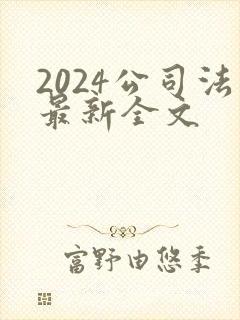 2024公司法
最新全文
富野由悠季